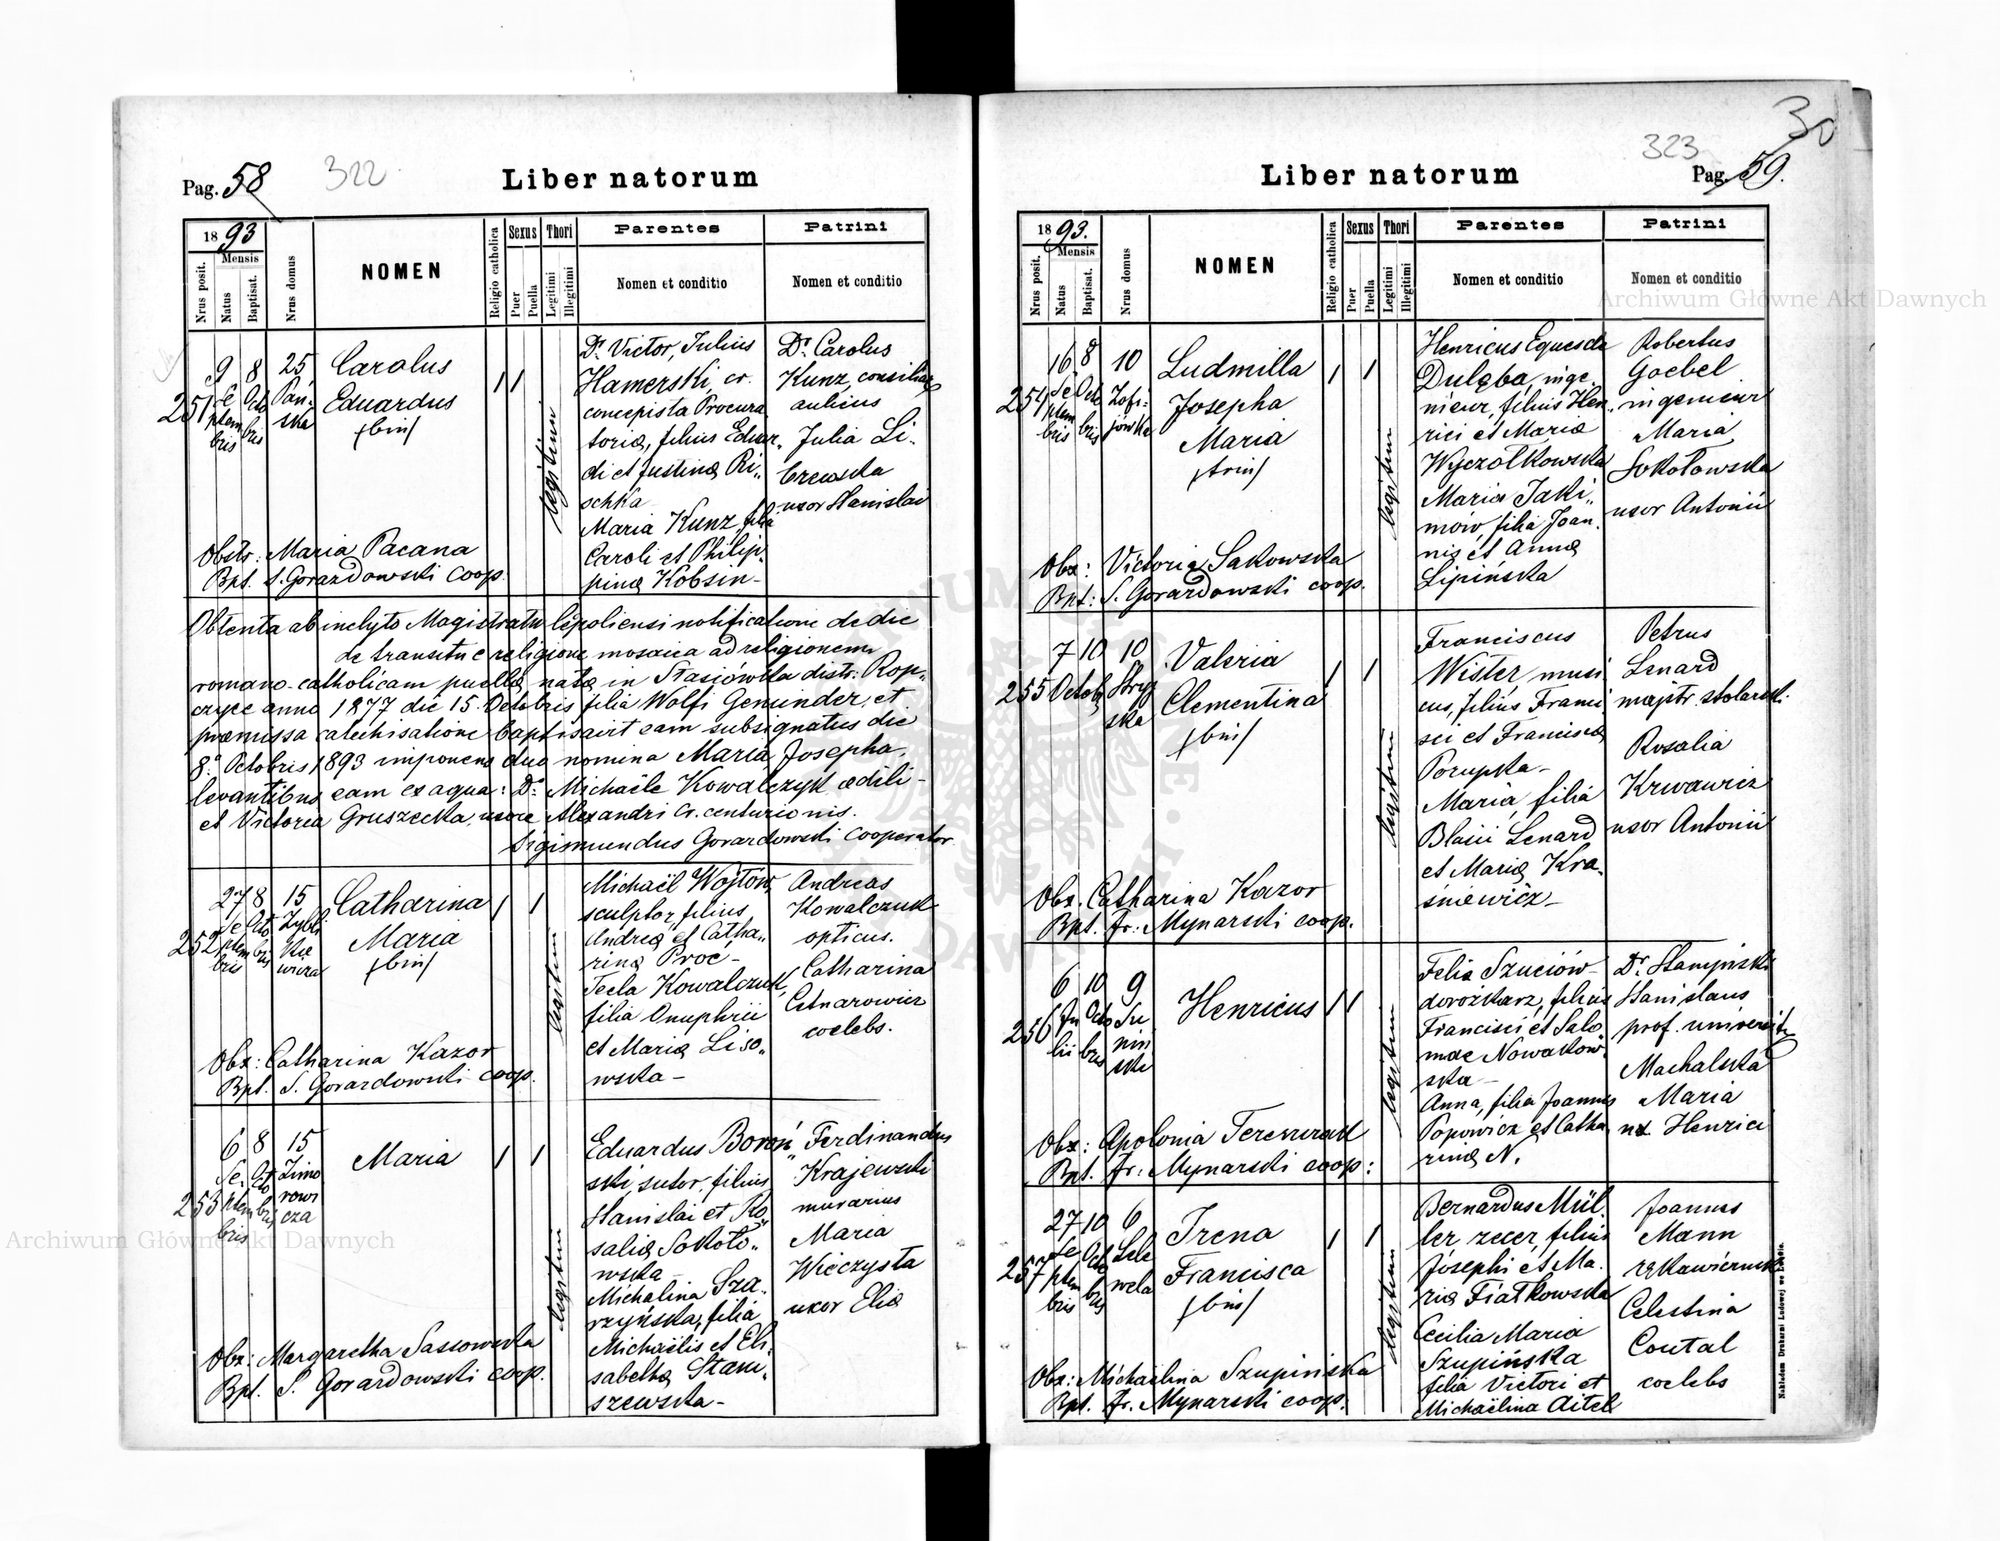 Pag. 58
322
Liber natorum
1893
Mensis
Nrus posit.
Natus
Baptisat.
Nrus domus
NOMEN
Religio catholica
Sexus
Puer
Puella
Thori
Legitimi
Illegitimi
Parentes
Nomen et conditio
Patrini
Nomen et conditio
251
9 Septembris
8 Octobris
25 Pańska
Carolus
Eduardus
/bin/
legitimi
Dr. Victor, Julius
Hamerski, cr.
concepista Procura
toriæ, filius Eduar„
di et Justinæ Ri„
schka
Maria Kunz, filia
Caroli et Philip„
pinæ Kobsin–
Dr. Carolus
Kunz, consiliar
aulicus
Julia Li„
brewska
uxor Stanislai
Obstr: Maria Pacana
Bpt. S. Gorazdowski coop.
Obtenta ab inclyto Magistratu leopoliensi notificatione de die
de transitu e religione mosaica ad religionem
romano-catholicam puellæ natæ in Stasiówka distr: Rop„
czyce anno 1877 die 15. Octobris filia Wolfi Genunder, et
præmissa catechisatione baptisavit eam subsignatus die
8a Octobris 1893 imponens duo nomina Maria, Josepha,
levantibus eam ex aqua: Dr. Michaële Kowalczyk ædili–
et Victoria Gruszecka, uxore Alexandri cr. centurionis.
Sigismundus Gorazdowski cooperator
252
27 Septembris
8 Octobris
15
Catharina
Maria
/bin/
legitimi
Michaël Wojtów
sculptor, filius
Andreæ et Catha„
rinæ Proc–
Tecla Kowalczuk,
filia Onuphrii
et Mariæ Liso„
wska–
Andreas
Kowalczuk
opticus.
Catharina
Cetnarowicz
coelebs.
Obx: Catharina Kazor
Bpt. S. Gorazdowski coop.
253
6 Septembris
8 Octobris
15 Zimorowicza
Maria
legitimi
Eduardus Boroń„
ski sutor, filius
Stanislai et Ro„
saliæ Sokoło„
wska
Michalina Sza„
rzyńska, filia
Michaëlis et Eli„
sabethæ Stani„
szewska–
Ferdinandus
Krajewski
murarius
Maria
Wieczysta
uxor Eliæ
Obx: Margaretha Sassowska
Bpt. S. Gorazdowski coop.
30
323
Pag. 59.
Liber natorum
1893.
Mensis
Nrus posit.
Natus
Baptisat.
Nrus domus
NOMEN
Religio catholica
Sexus
Puer
Puella
Thori
Legitimi
Illegitimi
Parentes
Nomen et conditio
Patrini
Nomen et conditio
254
16 Septembris
8 Octobris
10 Zofijówka
Ludmilla
Josepha
Maria
/trin/
legitimi
Henricus Eques de
Dulęba, inge„
nieur, filius Hen„
rici et Mariæ
Wyczółkowska
Maria Jaki„
mów, filia Joan„
nis et Annæ
Lipińska
Robertus
Goebel
ingenieur
Maria
Sokołowska
uxor Antonii
Obx: Victoria Sakowska
Bpt: S. Gorazdowski coop.
255
7 Octobr
10
10 Stryjska
Valeria
Clementina
/bin/
legitimi
Franciscus
Wister, musi
cus, filius Franci
sci et Franciscæ
Porupka–
Maria, filia
Blasii Lenard
et Mariæ Kra„
śniewicz–
Petrus
Lenard
majstr. stolarski.
Rosalia
Krwawicz
uxor Antonii
Obx. Catharina Kazor
Bpt. Fr. Mynarski coop.
256
6 Julii
10 Octobris
9
Henricus
legitimi
Felix Szuciów–
dorożkarz, filius
Francisci et Salo„
meæ Nowakow„
ska–
Anna, filia Joannis
Popowicz et Catha„
rinæ N.
Dr. Stanislaus
prof. universit
Machalska
Maria
ux. Henrici
Obx: Apolonia
Bpt. Fr: Mynarski coop:
257
27 Septembris
10 Octobris
6 Lelewela
Irena
Francisca
/bin/
legitimi
Bernardus Mül„
ler zecer, filius
Josephi et Ma„
riæ Fiałkowska
Cecilia Maria
Szupińska
filia Victori et
Michaëlina Aitel
Joannes
Mann
Celestina
Coutal
coelebs
Obx: Michaëlina Szupińska
Bpt. Fr. Mynarski coop.
Nakładem Drukarni Ludowej we Lwowie.
Archiwum Główne Akt Dawnych
Archiwum Główne Akt Dawnych